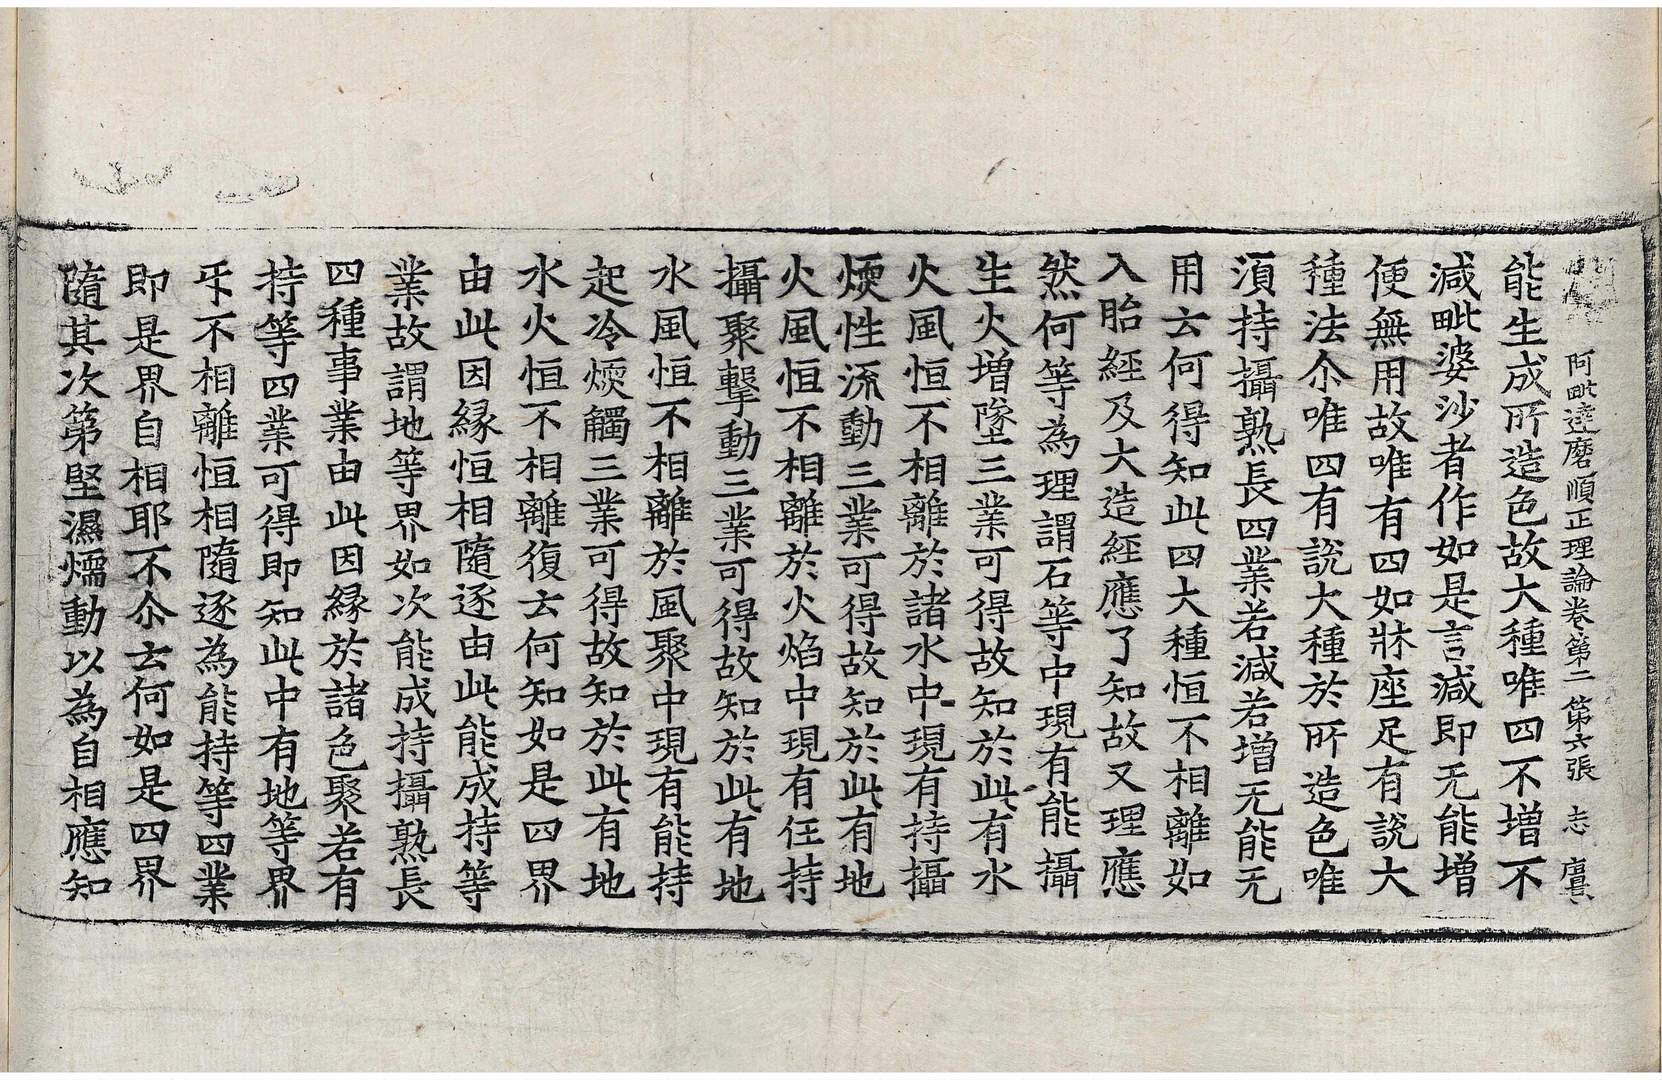 阿毗達磨順正理論卷第二 第六張 志
能生成所造色故大種唯四不增不
減毗婆沙者作如是言減即无能增
便無用故唯有四如牀座足有說大
種法尒唯四有說大種於所造色唯
湏持攝熟長四業若減若增无能无
用云何得知此四大種恒不相離如
入胎經及大造經應了知故又理應
然何等為理謂石等中現有能攝
生火增墜三業可得故知於此有水
火風恒不相離於諸水中現有持攝
煗性流動三業可得故知於此有地
火風恒不相離於火焰中現有任持
攝聚擊動三業可得故知於此有地
水風恒不相離於風聚中現有能持
起冷煗觸三業可得故知於此有地
水火恒不相離復云何知如是四界
由此因縁恒相隨逐由此能成持等
業故謂地等界如次能成持攝熟長
四種事業由此因縁於諸色聚若有
持等四業可得即知此中有地等界
㸦不相離恒相隨逐為能持等四業
即是界自相耶不尒云何如是四界
隨其次第堅濕煗動以為自相應知